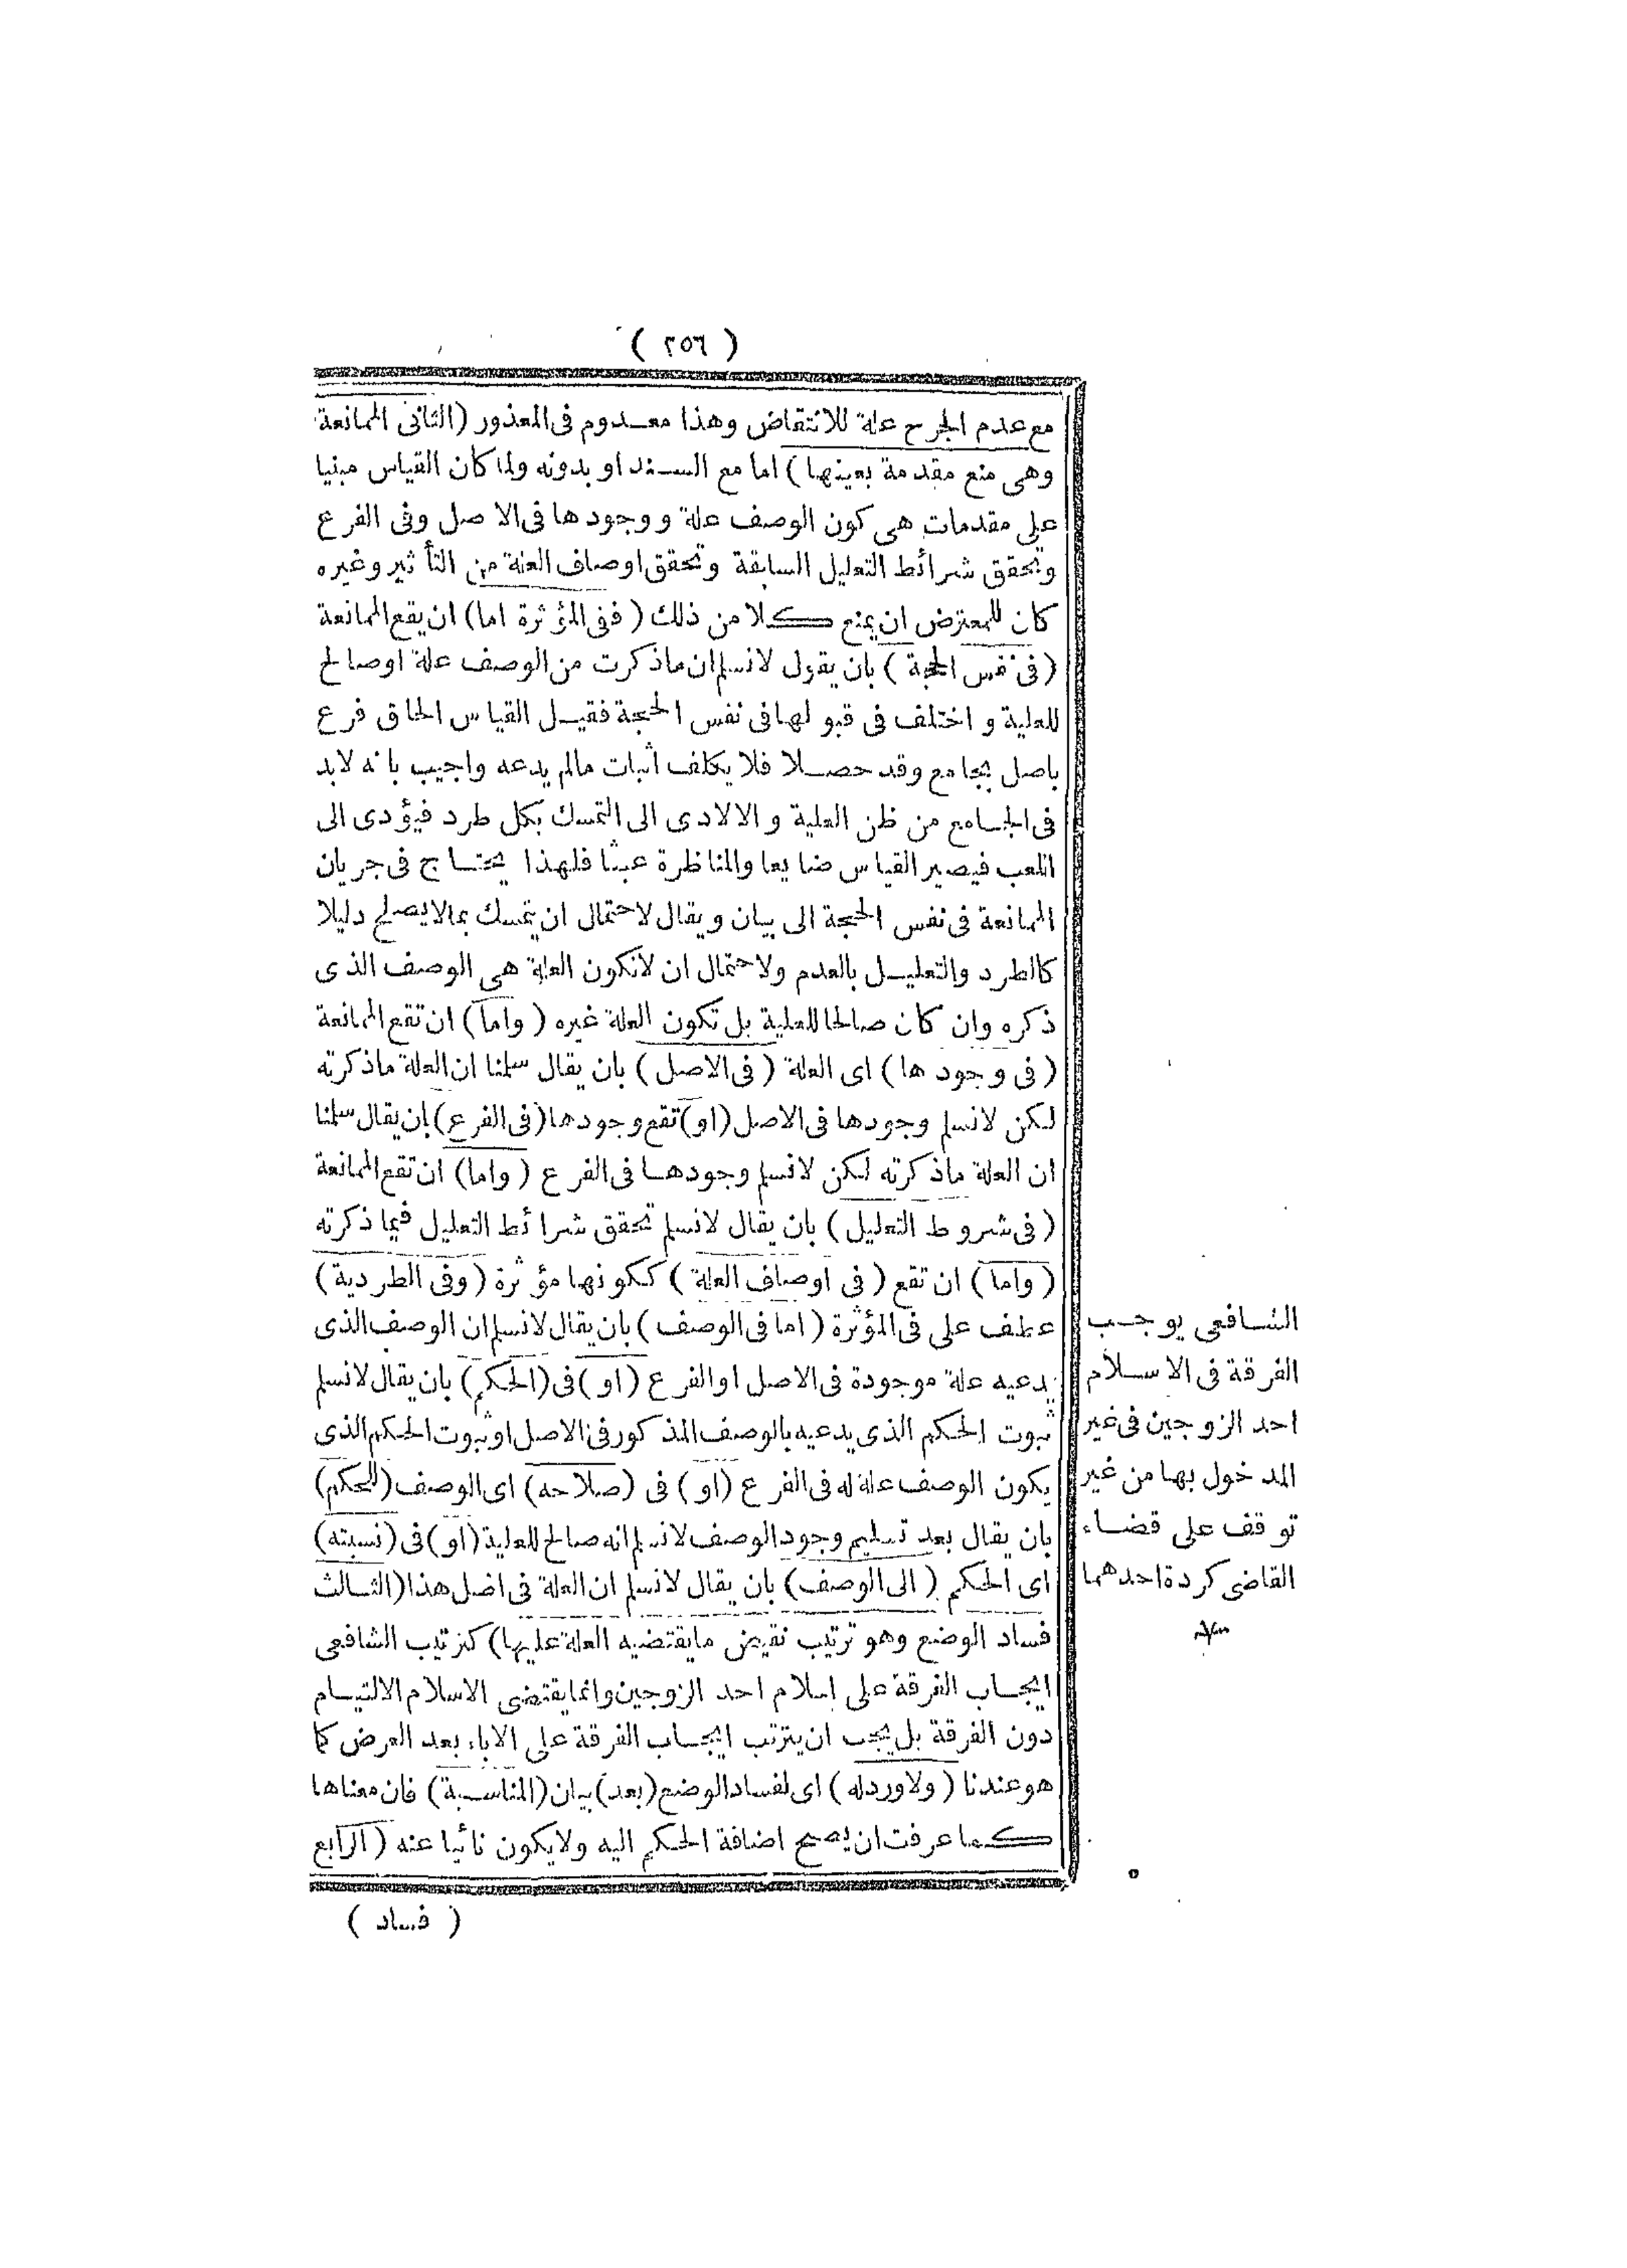 ( ٢٥٦ )
مع عدم الجرح علة للانتقاض وهذا معدوم فى المعذور (الثانى الممانعة
وهى منع مقدمة بعينها) اما مع السند او بدونه ولما كان القياس مبنيا
على مقدمات هى كون الوصف علة ووجودها فى الاصل وفى الفرع
وتحقق شرائط التعليل السابقة وتحقق اوصاف العلة من التأثير وغيره
كان للمعترض ان يمنع كلا من ذلك (ففى المؤثرة اما) ان يقع الممانعة
(فى نفس الحجة) بان يقول لانسلم ان ماذكرت من الوصف علة اوصالح
للعلية واختلف فى قبولها فى نفس الحجة فقيل القياس الحاق فرع
باصل بجامع وقد حصلا فلا يكلف اثبات مالم يدعه واجيب بانه لابد
فى الجامع من ظن العلية والالادى الى التمسك بكل طرد فيؤدى الى
اللعب فيصير القياس ضايعا والمناظرة عبثا فلهذا يحتاج فى جريان
الممانعة فى نفس الحجة الى بيان ويقال لاحتمال ان يتمسك بمالايصلح دليلا
كالطرد والتعليل بالعدم ولاحتمال ان لاتكون العلة هى الوصف الذى
ذكره وان كان صالحا للعلية بل تكون العلة غيره (واما) ان تقع الممانعة
(فى وجودها) اى العلة (فى الاصل) بان يقال سلمنا ان العلة ماذكرته
لكن لانسلم وجودها فى الاصل (او) تقع وجودها (فى الفرع) بان يقال سلمنا
ان العلة ماذكرته لكن لانسلم وجودها فى الفرع (واما) ان تقع الممانعة
(فى شروط التعليل) بان يقال لانسلم تحقق شرائط التعليل فيما ذكرته
(واما) ان تقع (فى اوصاف العلة) ككونها مؤثرة (وفى الطردية)
عطف على فى المؤثرة (اما فى الوصف) بان يقال لانسلم ان الوصف الذى
يدعيه علة موجودة فى الاصل او الفرع (او) فى (الحكم) بان يقال لانسلم
ثبوت الحكم الذى يدعيه بالوصف المذكور فى الاصل او ثبوت الحكم الذى
يكون الوصف علة له فى الفرع (او) فى (صلاحه) اى الوصف (للحكم)
بان يقال بعد تسليم وجود الوصف لانسلم انه صالح للعلية (او) فى (نسبته)
اى الحكم (الى الوصف) بان يقال لانسلم ان العلة فى اصل هذا (الثالث
فساد الوضع وهو ترتيب نقيض مايقتضيه العلة عليها) كترتيب الشافعى
ايجاب الفرقة على اسلام احد الزوجين وانما يقتضى الاسلام الالتيام
دون الفرقة بل يجب ان يترتب ايجاب الفرقة على الاباء بعد العرض كما
هو عندنا (ولاورد له) اى لفساد الوضع (بعد) بيان (المناسبة) فان معناها
كما عرفت ان يصح اضافة الحكم اليه ولايكون نائيا عنه (الرابع
( فساد )
الشافعى يوجب
الفرقة فى الاسلام
احد الزوجين فى غير
المدخول بها من غير
توقف على قضاء
القاضى كردة احدهما